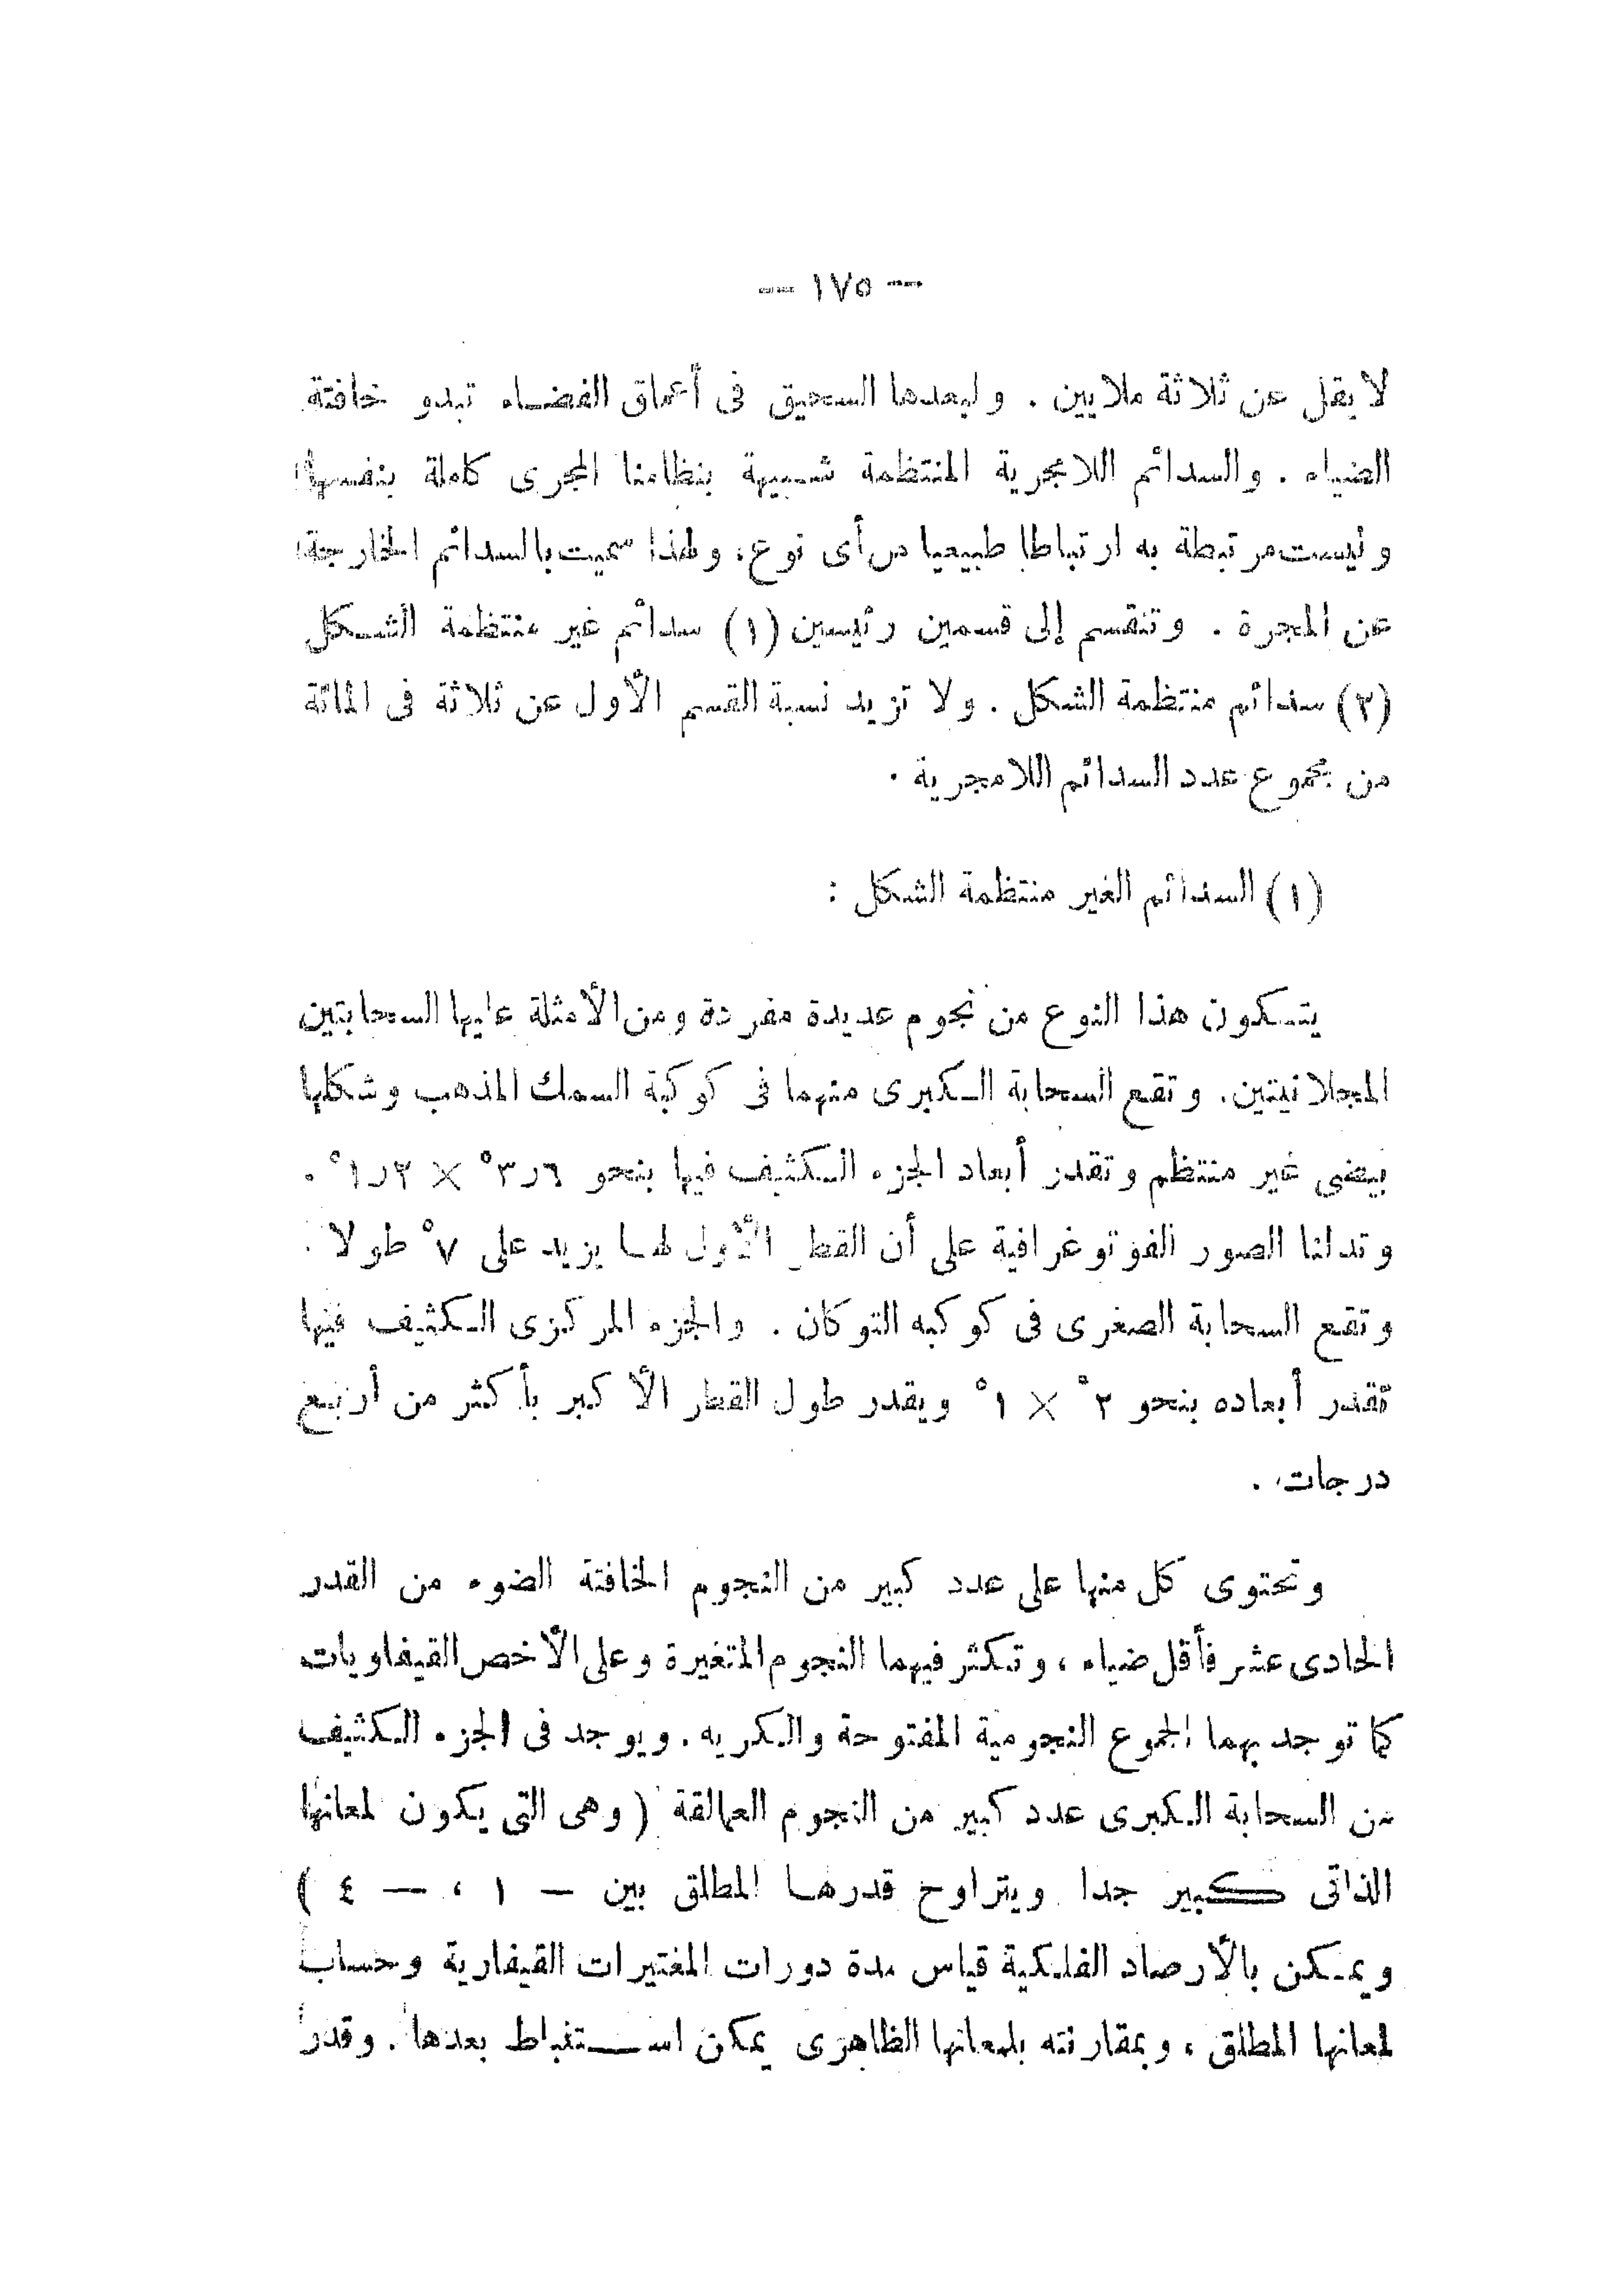 — ١٧٥ —
لا يقل عن ثلاثة ملايين . ولبعدها السحيق فى أعماق الفضاء تبدو خافتة
الضياء . والسدائم اللامجرية المنتظمة شبيهة بنظامنا المجرى كاملة بنفسها
وليست مرتبطة به ارتباطا طبيعيا من أى نوع، ولهذا سميت بالسدائم الخارجة
عن المجرة . وتنقسم إلى قسمين رئيسين (١) سدائم غير منتظمة الشكل
(٢) سدائم منتظمة الشكل . ولا تزيد نسبة القسم الأول عن ثلاثة فى المائة
من مجموع عدد السدائم اللامجرية .
(١) السدائم الغير منتظمة الشكل :
يتكون هذا النوع من نجوم عديدة مفردة ومن الأمثلة عليها السحابتين
المجلانيتين. وتقع السحابة الكبرى منهما فى كوكبة السمك المذهب وشكلها
بيضى غير منتظم وتقدر أبعاد الجزء الكثيف فيها بنحو ٦ر٣° × ٢ر١° .
وتدلنا الصور الفوتوغرافية على أن القطر الأول لها يزيد على ٧° طولا .
وتقع السحابة الصغرى فى كوكبه التوكان . والجزء المركزى الكثيف فيها
تقدر أبعاده بنحو ٢° × ١° ويقدر طول القطر الأكبر بأكثر من أربع
درجات .
وتحتوى كل منها على عدد كبير من النجوم الخافتة الضوء من القدر
الحادى عشر فأقل ضياء ، وتكثر فيهما النجوم المتغيرة وعلى الأخص القيفاويات
كما توجد بهما الجموع النجومية المفتوحة والكريه. ويوجد فى الجزء الكثيف
من السحابة الكبرى عدد كبير من النجوم العمالقة ( وهى التى يكون لمعانها
الذاتى كبير جدا ويتراوح قدرها المطلق بين — ١ ، — ٤ )
ويمكن بالأرصاد الفلكية قياس مدة دورات المغتيرات القيفارية وحساب
لمعانها المطلق ، وبمقارنته بلمعانها الظاهرى يمكن استنباط بعدها . وقدر